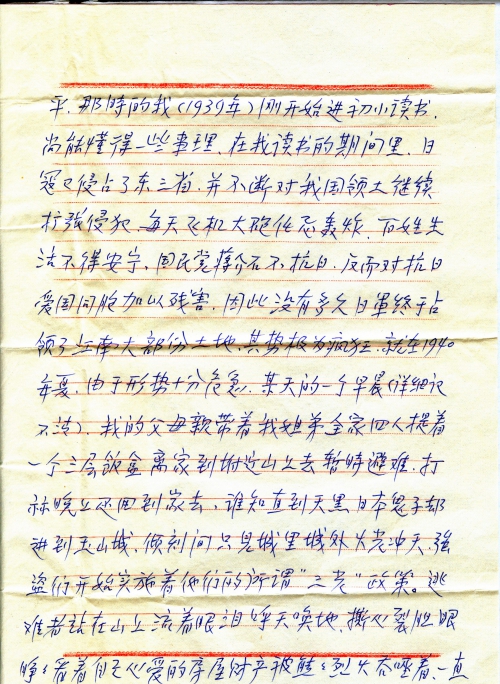 平，那时的我（1939年）刚开始进初小读书，
尚能懂得一些事理，在我读书的期间里，日
寇已侵占了东三省，并不断对我国领土继续
扩张侵犯，每天飞机大砲任意轰炸，百姓生
活不得安宁，国民党蒋介石不抗日，反而对抗日
爱国同胞加以残害，因此没有多久日軍终于占
领了江南大部份土地，其势极为疯狂，就在1940
年夏，由于形势十分危急，某天的一个早晨（详细记
不清），我的父母親带着我姐弟全家四人提着
一个三层饭盒离家到附近山上去暂時避难，打
祘晚上还回到家去，谁知直到天黑日本鬼子却
进到玉山城，倾刻间只見城里城外火光冲天，强
盗们开始实施着他们的所谓“三光”政策。逃
难者站在山上流着眼泪呼天唤地，撕心裂胆眼
睁々看着自己心爱的房屋财产被熊々烈火吞噬着，一直